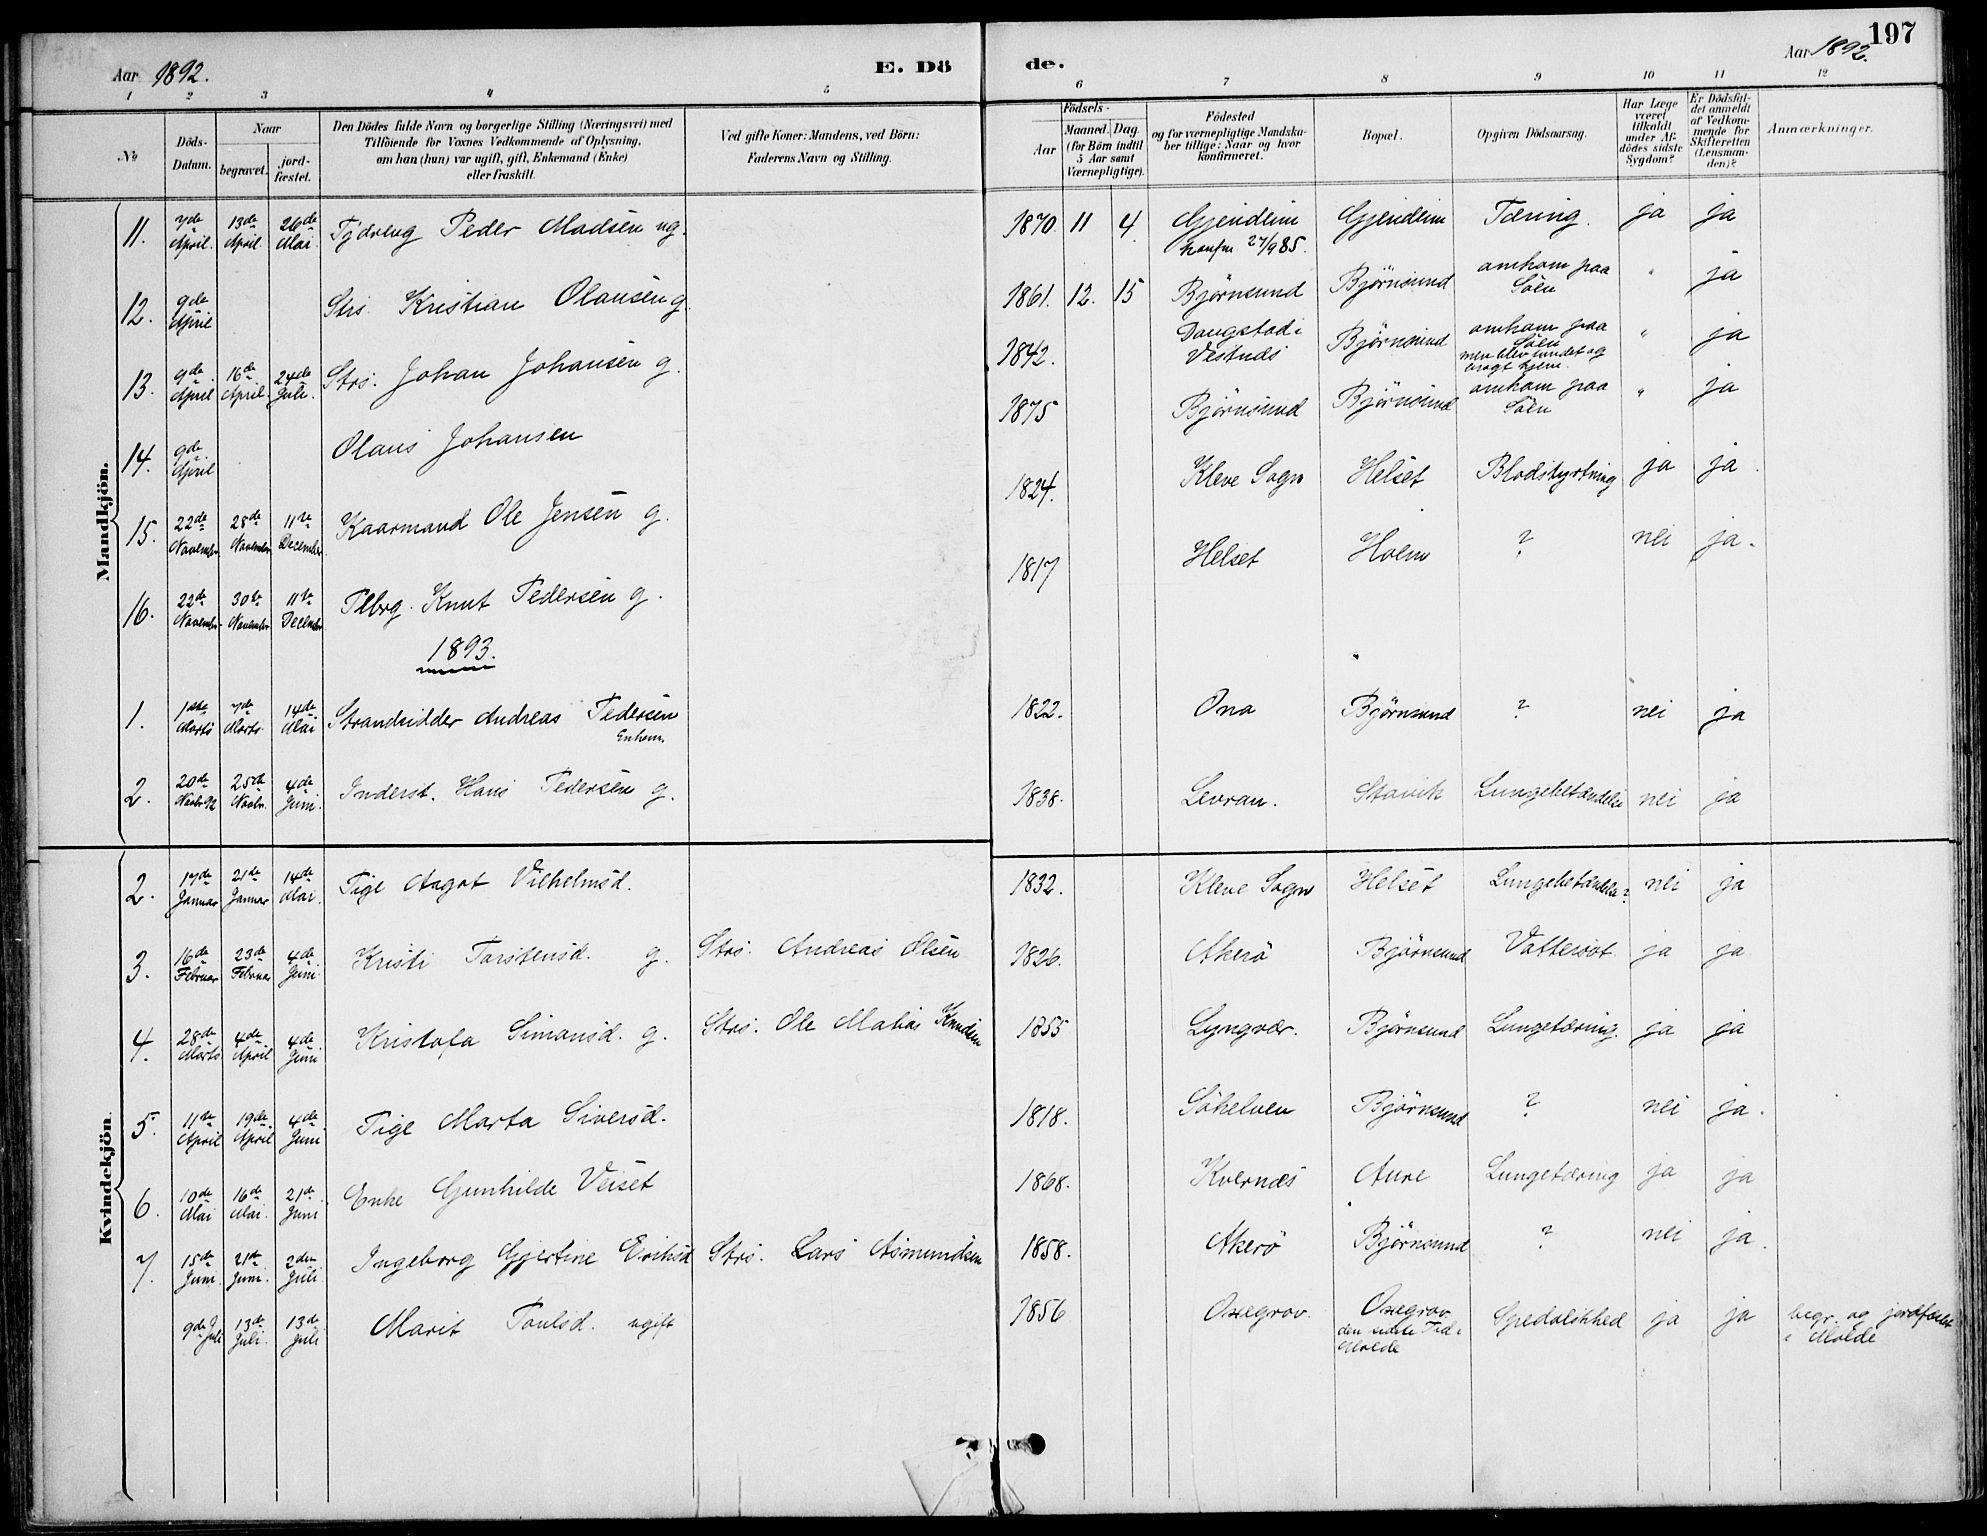 197
Aar 1892.
E. Dö
de.
Aar 1892.
1 2 3 4 5 6 7 8 9 10 11 12
No
Döds-Datum.
Naar
begravet.
jord-fæstet.
Den Dödes fulde Navn og borgerlige Stilling (Næringsvei) med
Tilföiende for Voxnes Vedkommende af Oplysning,
om han (hun) var ugift, gift, Enkemand (Enke)
eller fraskilt.
Ved gifte Koner: Mandens, ved Börn:
Faderens Navn og Stilling.
Födsels-
Aar
Maaned. Dag
(for Börn indtil
5 Aar samt
Værnepligtige).
Födested
og for værnepligtige Mandska-
ber tillige: Naar og hvor
konfirmeret.
Bopæl.
Opgiven Dödsaarsag.
Har Læge
været
tilkaldt
under Af-
dödes sidste
Sygdom?
Er Dödsfal-
det anmeldt
af Vedkom-
mende for
Skifteretten
(Lensman-
den)?
Anmærkninger.
Mandkjön.
11. 7de April. 13de April. 26de Mai Peder Madsen ug. 1870 11 4 Gjendem Gjendem Tæring. ja ja
27/9 85.
12. 9de April Strs. Kristian Olausen g. 1861. 12. 15 Björnsund Björnsund omkom paa Söen " ja
13. 9de April 16de April. 24de Juli. Strs. Johan Johansen g. 1842. Daugstad i Vestnæs Björnsund omkom paa Söen men blev fundet og bragt hjem. " ja
14. 9de April Olaus Johansen 1875 Björnsund Björnsund omkom paa Söen " ja
15. 22de November 28de November 11te December Kaarmand Ole Jensen g. 1824. Kleve Sogn Helset Blodstyrtning ja ja.
16. 22de November 30te November 11te December Knut Pedersen g. 1817 Helset Holm ? nei ja.
1893.
1. 1ste Marts 7de Marts 14de Mai Strandsidder Andreas Pedersen Enkem. 1822. Ona Björnsund ? nei ja
2. 20de Novbr 92 25de Novbr. 4de Juni. Inderst. Hans Pedersen g. 1838. Levran. Stavik Lungebetændelse nei ja
Kvindekjön
2. 17de Januar 21de Januar 14de Mai. Pige Aagot Vilhelmsd. 1832. Kleve Sogn Helset Lungebetændelse? nei ja
3. 16de Februar 23de Februar 4de Juni Kristi Torstensd. g. Strs. Andreas Olsen 1826. Akerö Björnsund Vattersot ja ja
4. 28de Marts 4de April 4de Juni Kristofa Simonsd. g. Strs. Ole Matias Knudsen 1855 Lyngvær. Björnsund Lungetæring. ja ja
5. 11te April 19de April 4de Juni Pige Marta Siversd. 1818. Sökelven Björnsund ? nei ja.
6. 10de Mai 16de Mai. 21de Juni Enke Gunhilde Veiset 1868. Kvernæs Aure Lungetæring ja ja
7. 15de Juni. 21de Juni. 2den Juli Ingeborg Gjertine Eriksd Strs. Lars Asmundsen 1858. Akerö Björnsund ? nei ja.
9de Juli 13de Juli. 13de Juli Marit Poulsd. ugift 1856 Oxegrov. Oxegrov den sidste Tid i Molde Spedalskhed ja ja begr. og jordfæstet i Molde